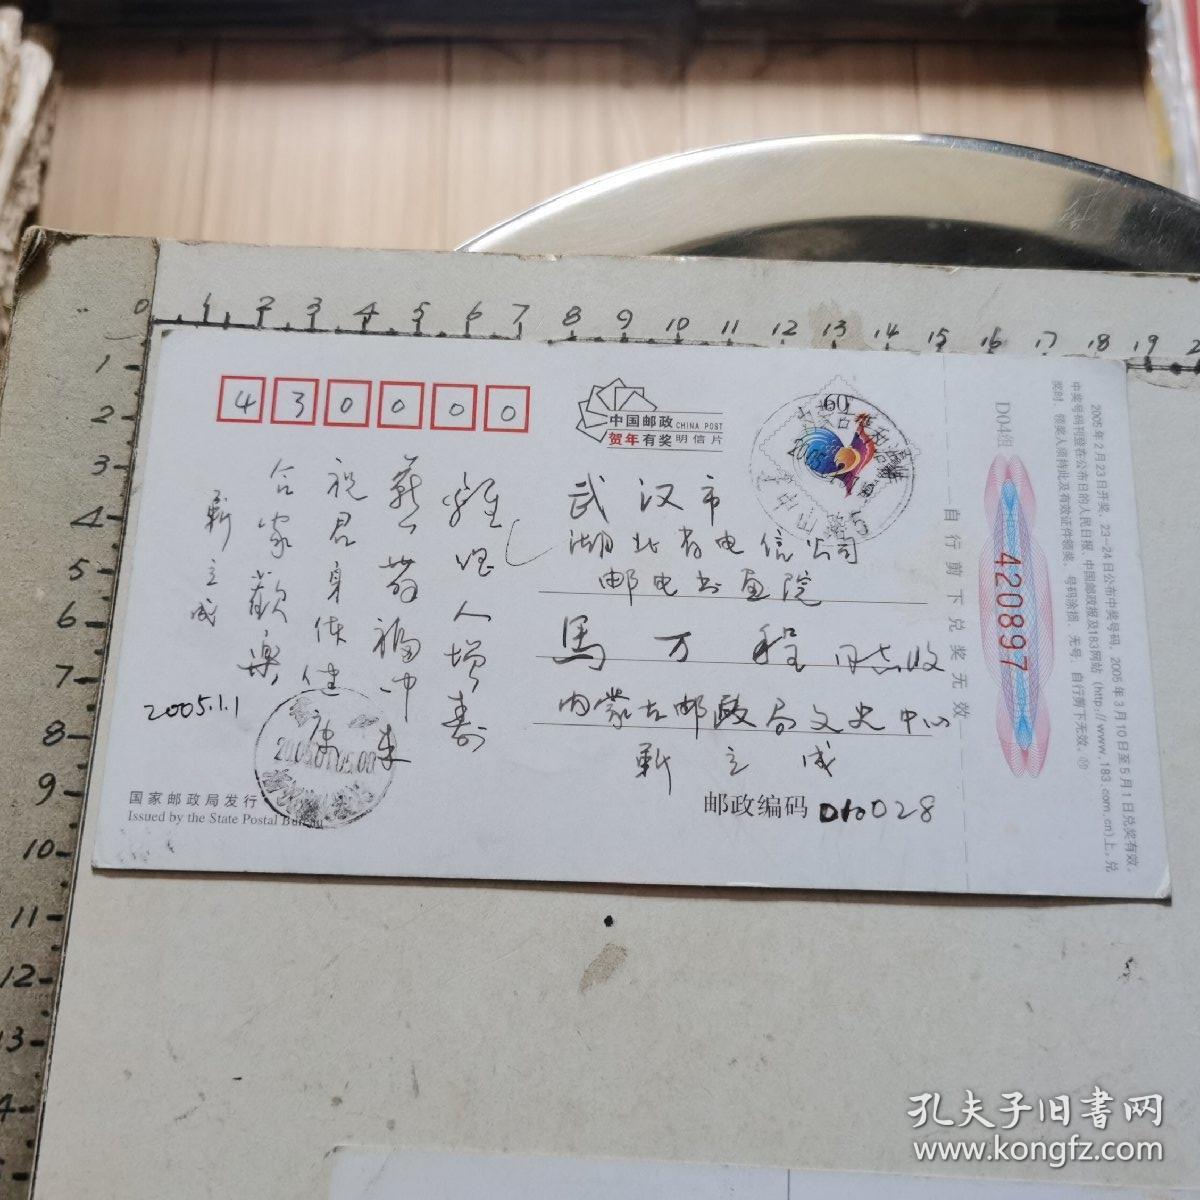 0 1 2 3 4 5 6 7 8 9 10 11 12 13 14 15 16 17 18 19
1
2
3
4
5
6
7
8
9
10
11
12
13
430000
中国邮政 CHINA POST
贺年有奖明信片
60
武汉市
湖北省电信公司
邮电书画院
馬万程同志收
内蒙古邮政局文史中心
靳立成
邮政编码 010028
人增寿
福
祝君身体健康
合家歡樂
靳立成
2005.1.1
国家邮政局发行
Issued by the State Postal Bureau
自行剪下兑奖无效
D04组
420897
2005年2月23日开奖，23-24日公布中奖号码，2005年3月10日至5月1日兑奖有效。
中奖号码刊登在公布日的人民日报、中国邮政报及183网站（http://www.183.com.cn）上，兑
奖时，领奖人须持此及有效证件领奖，号码涂损、无号、自行剪下无效。
孔夫子旧书网
www.kongfz.com